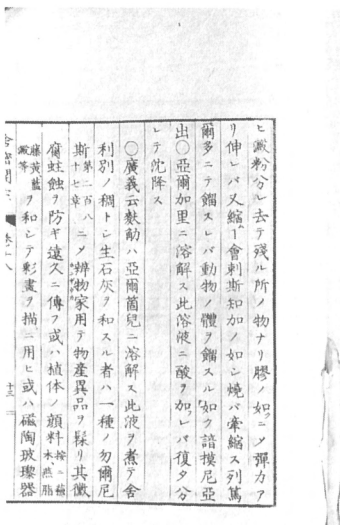 ヒ澱粉分レ去テ殘ル所ノ物ナリ膠ノ如ニノ彈力ア
リ伸レバ又縮ム會刺斯知加ノ如シ燒バ牽縮ス列篤
爾多ニテ餾スレバ動物ノ體ヲ餾スル如ク諳摸尼亞
出〇亞爾加里ニ溶解ス此溶液ニ酸ヲ加レバ復タ分
レテ沈降ス
〇廣義云麩觔ハ亞爾箇兒ニ溶解ス此液ヲ煮テ舍
利別ノ稠トシ生石灰ヲ和スル者ハ一種ノ勿爾尼
斯第二百八十七章ニノ辨物家用テ物産異品ヲ髹リ其黴
腐蛀蝕ヲ防ギ遠久ニ傳フ或ハ植体ノ顔料按ニ 燕脂
藤黃藍澱等ヲ和シテ彩畫ヲ描ニ用ヒ或ハ磁陶玻瓈器
十三